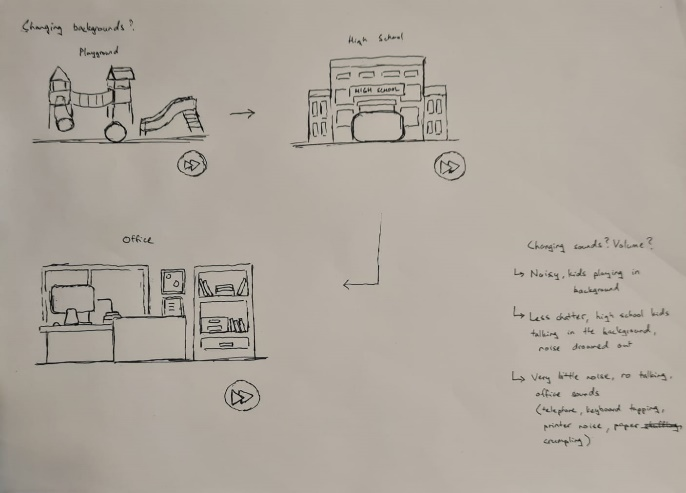 Changing backgrounds?
Playground
High School
HIGH SCHOOL
Office
Changing sounds? Volume?
↳ Noisy, kids playing in
background
↳ Less chatter, high school kids
talking in the background,
noise drowned out
↳ Very little noise, no talking,
office sounds
(telephone, keyboard tapping,
printer noise, paper
crumpling)